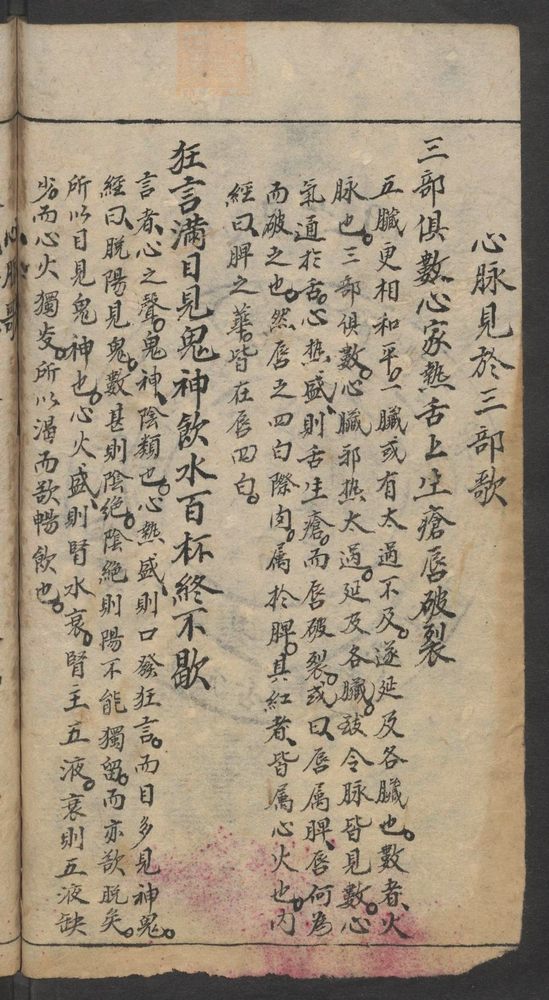 心脉見於三部歌
三部俱數心家熱舌上生瘡唇破裂
五臟更相和平。一臟或有太過不及。遂延及各臟也。數者、火
脉也。三部俱數。心臟邪熱太過。延及各臟。致令脉皆見數。心
氣通於舌。心熱盛、則舌生瘡。而唇破裂。或曰唇屬脾、唇何為
而破之也。然唇之四白際肉。屬於脾。其紅者、皆屬心火也。內
經曰、脾之華。皆在唇四白。
狂言滿目見鬼神飲水百杯終不歇
言者、心之聲。鬼神、陰類也。心熱盛、則口發狂言。而目多見神鬼。
經曰、脫陽見鬼。數甚則陰絕。陰絕則陽不能獨留。而亦欲脫矣。
所以目見鬼神也。心火盛、則腎水衰。腎主五液。衰則五液缺
少。而心火獨炎。所以渴而欲暢飲也。